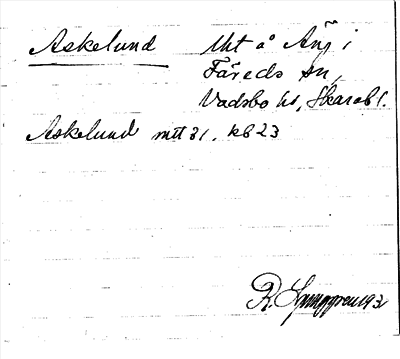 Askelund Uht å Äng i
Färeds sn,
Vadsbo hd, Skarab l.
Askelund mtl 31. kb 23
R. Ljunggren 193